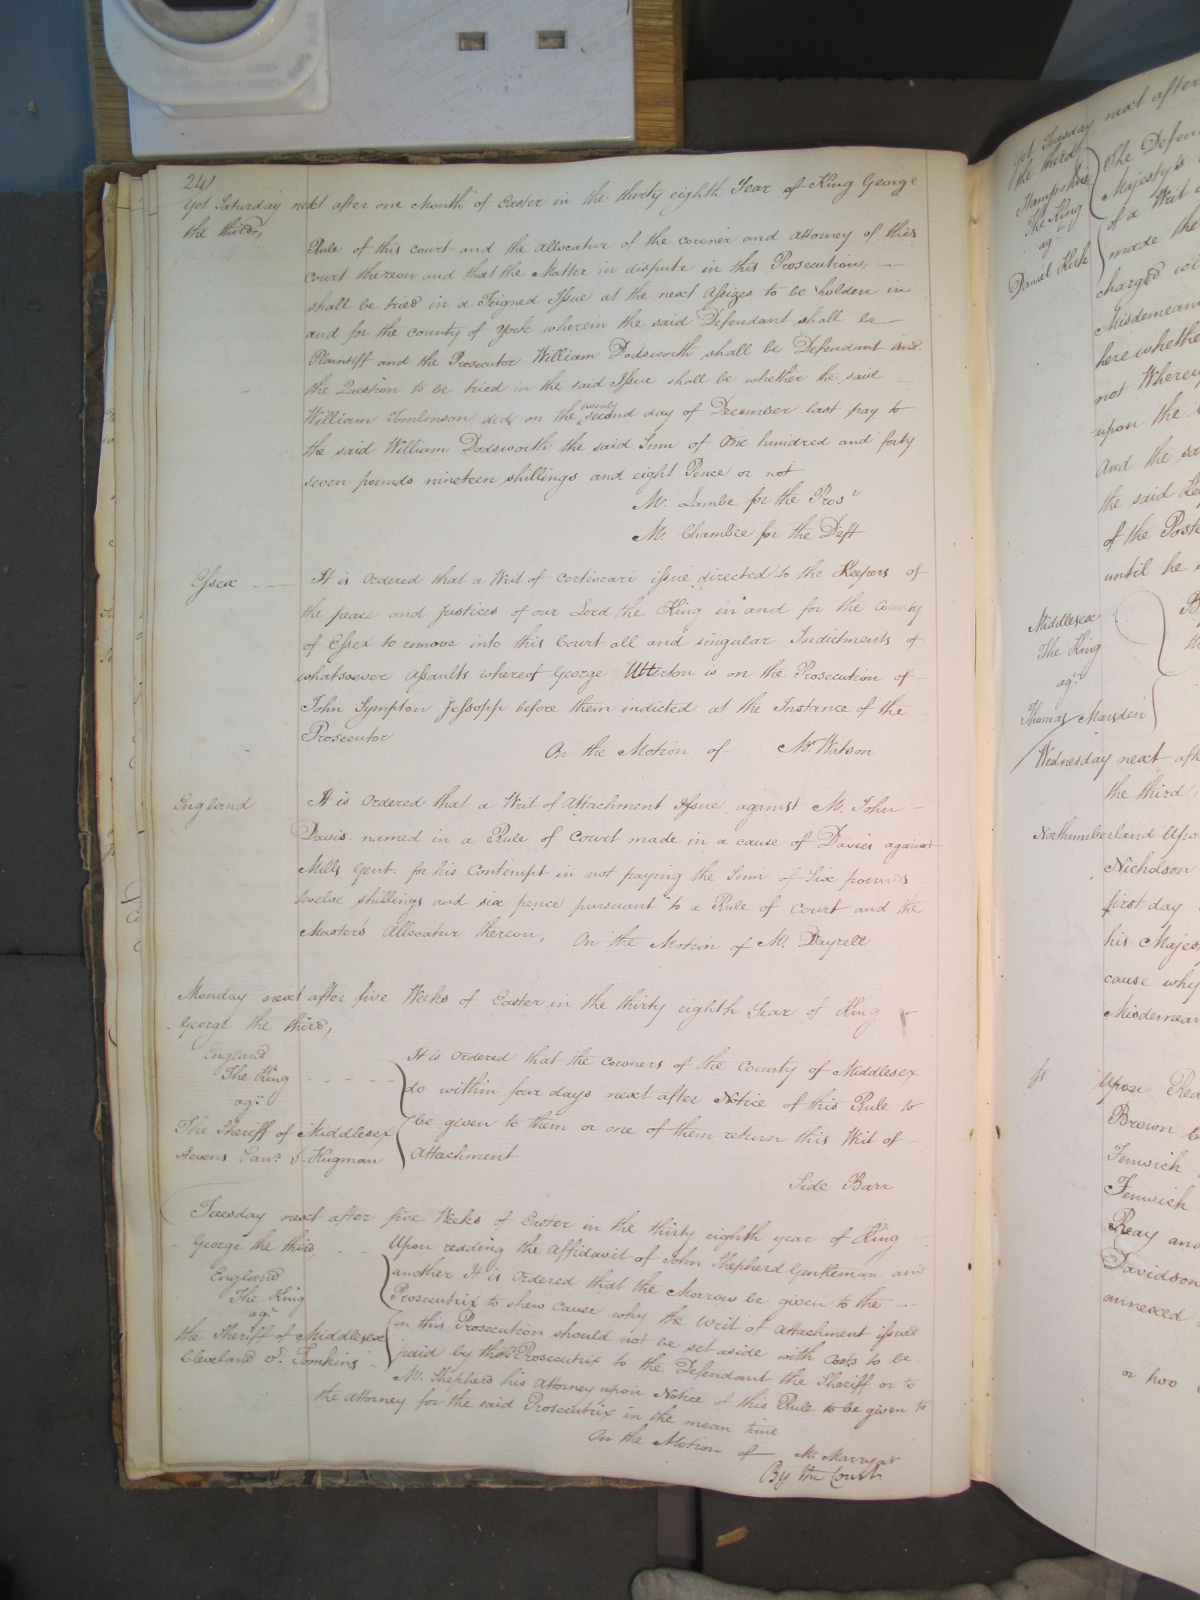 24
Yet Saturday next after one Month of Easter in the thirty eighth Year of King George
the third,
Rule of this court and the allocatur of the coroner and attorney of this
Court thereon and that the Matter in dispute in this Prosecution
shall be tried in a Feigned Issue at the next Assizes to be holden in
and for the county of York wherein the said Defendant shall be
Plaintiff and the Prosecutor William Dodsworth shall be Defendant and
the Question to be tried in the said Issue shall be whether the said
twenty
William Tomlinson did on the second day of December last pay to
the said William Dodsworth the said Sum of One hundred and forty
seven pounds nineteen shillings and eight Pence or not
Mr. Lambe for the Prosr
Mr. Chambre for the Deft
Essex It is Ordered that a Writ of Certiorari issue directed to the Keepers of
the peace and Justices of our Lord the King in and for the County
of Essex to remove into this Court all and singular Indictments of
whatsoever Assaults whereof George Utterton is on the Prosecution of
John Sympton Jessopp before them indicted at the Instance of the
Prosecutor
On the Motion of Mr. Watson
England It is Ordered that a Writ of Attachment Issue against Mr. John
Davis named in a Rule of Court made in a cause of Davies against
Mills Gent. for his Contempt in not paying the Sum of Six pounds
twelve shillings and six pence pursuant to a Rule of Court and the
Master's Allocatur thereon, On the Motion of Mr. Dayrell
Monday next after five Weeks of Easter in the thirty eighth Year of King
George the third,
England
The King
agt
The Sheriff of Middlesex
Hugman
It is Ordered that the Coroners of the County of Middlesex
do within four days next after Notice of this Rule to
be given to them or one of them return this Writ of
Attachment
Side Barr
Tuesday next after five Weeks of Easter in the thirty eighth year of King
George the third,
England
The King
agt
the Sheriff of Middlesex
Cleveland v. Tomkins
Upon reading the Affidavit of John Shepherd Gentleman and
another It is Ordered that the Morrow be given to the
Prosecutrix to shew cause why the Writ of Attachment issued
in this Prosecution should not be set aside with Costs to be
paid by the Prosecutrix to the Defendant the Sheriff or to
Mr. Shepherd his Attorney upon Notice of this Rule to be given to
the Attorney for the said Prosecutrix in the mean time
On the Motion of Mr. Marryat
By the Court
Yet Tuesday next after
the third
Hampshire
The King
agt
Daniel Kirk
The Defen
Majesty's
of a Writ
made the
charged wi
Misdemean
here whethe
not Wherey
upon the
And the sa
the said Ke
of the Poste
until he
Middlesex
The King
agt
Thomas Marsden
Wednesday next aft
the third
Northumberland Upo
Nicholson
first day
his Majes
cause why
Misdemean
Upon Rea
Brown
Fenwick
Fenwick
Reay and
Davidson
annexed
or two